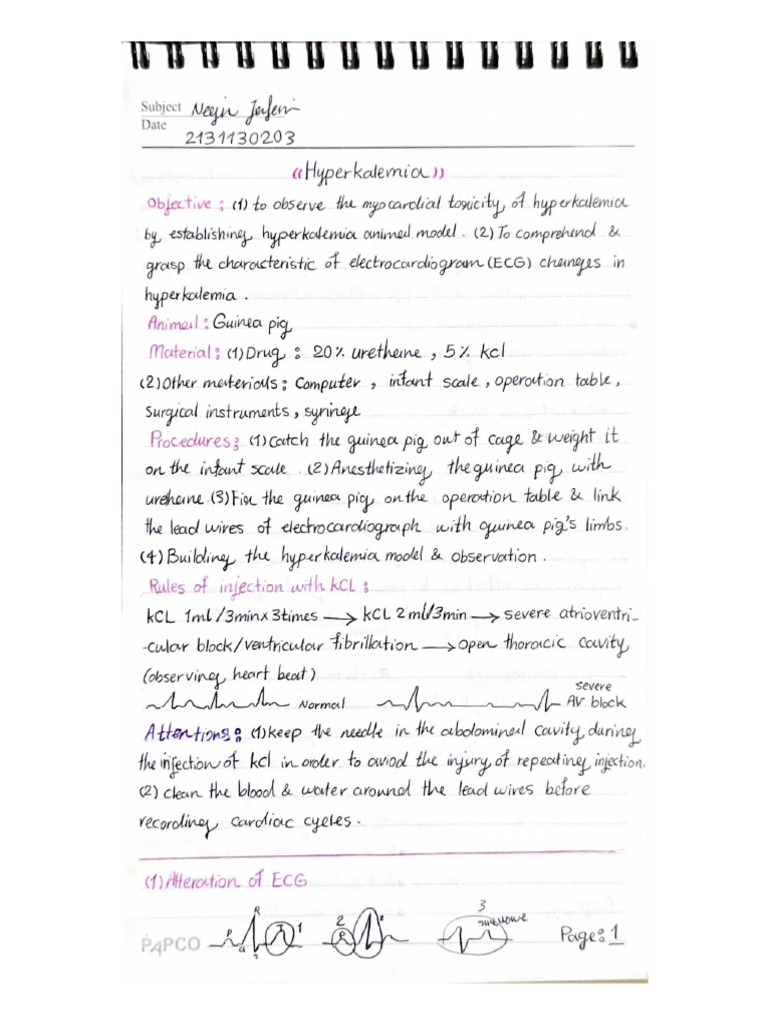 Subject Negin Jafari
Date
2131130203
((Hyperkalemia))
Objective: (1) to observe the myocardial toxicity, of hyperkalemia
by establishing hyperkalemia animal model. (2) To comprehend &
grasp the characteristic of electrocardiogram (ECG) changes in
hyperkalemia.
Animal: Guinea pig
Material: (1) Drug: 20% urethane, 5% kcl
(2) Other materials: Computer, infant scale, operation table,
Surgical instruments, syringe
Procedures: (1) Catch the guinea pig out of cage & weight it
on the infant scale. (2) Anesthetizing the guinea pig with
urehane. (3) Fix the guinea pig on the operation table & link
the lead wires of electrocardiograph with guinea pig's limbs.
(4) Building the hyperkalemia model & observation.
Rules of injection with KCL:
KCL 1ml/3min×3times → KCL 2ml/3min → severe atrioventri-
-cular block/ventricular fibrillation → open thoracic cavity
(observing heart beat)
Normal severe
AV block
Attentions: (1) keep the needle in the abdominal cavity during
the injection of kcl in order to aviod the injury of repeating injection.
(2) clean the blood & water around the lead wires before
recording cardiac cycles.
(1) Alteration of ECG
P Q R S T 1 2 P R 3
PAPCO Page: 1